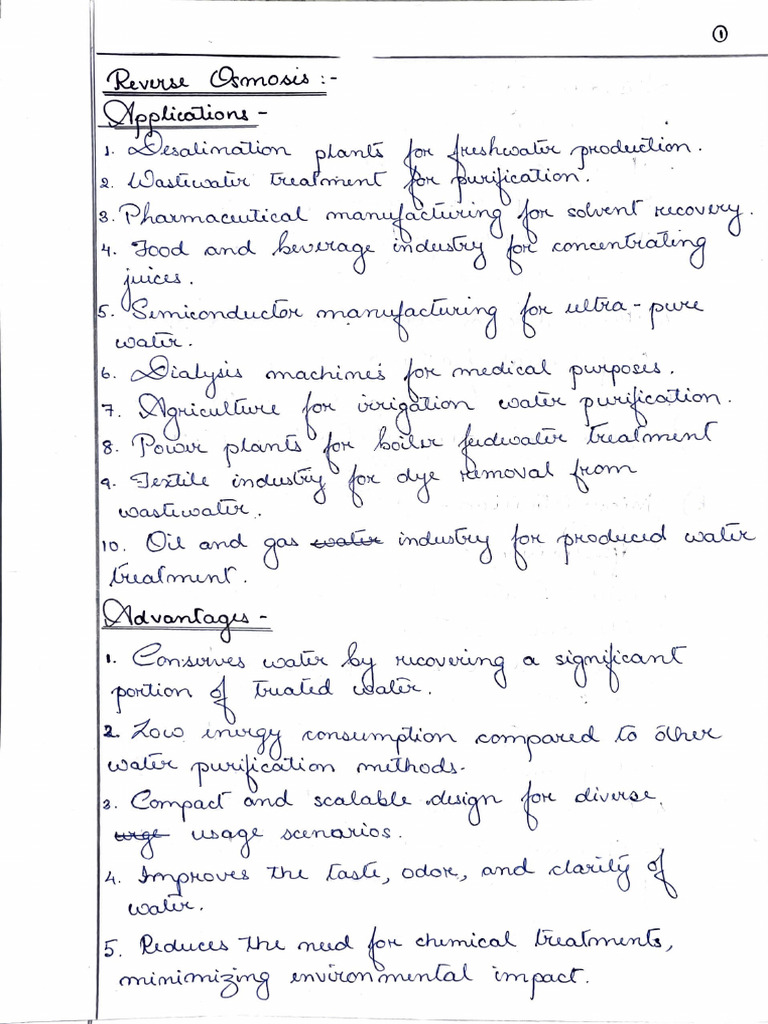 ①
Reverse Osmosis :-
Applications -
1. Desalination plants for freshwater production.
2. Wastewater treatment for purification.
3. Pharmaceutical manufacturing for solvent recovery.
4. Food and beverage industry for concentrating
juices.
5. Semiconductor manufacturing for ultra-pure
water.
6. Dialysis machines for medical purposes.
7. Agriculture for irrigation water purification.
8. Power plants for boiler feedwater treatment
9. Textile industry for dye removal from
wastewater.
10. Oil and gas water industry for produced water
treatment.
Advantages -
1. Conserves water by recovering a significant
portion of treated water.
2. Low energy consumption compared to other
water purification methods.
3. Compact and scalable design for diverse
urge usage scenarios.
4. Improves the taste, odor, and clarity of
water.
5. Reduces the need for chemical treatments,
minimizing environmental impact.